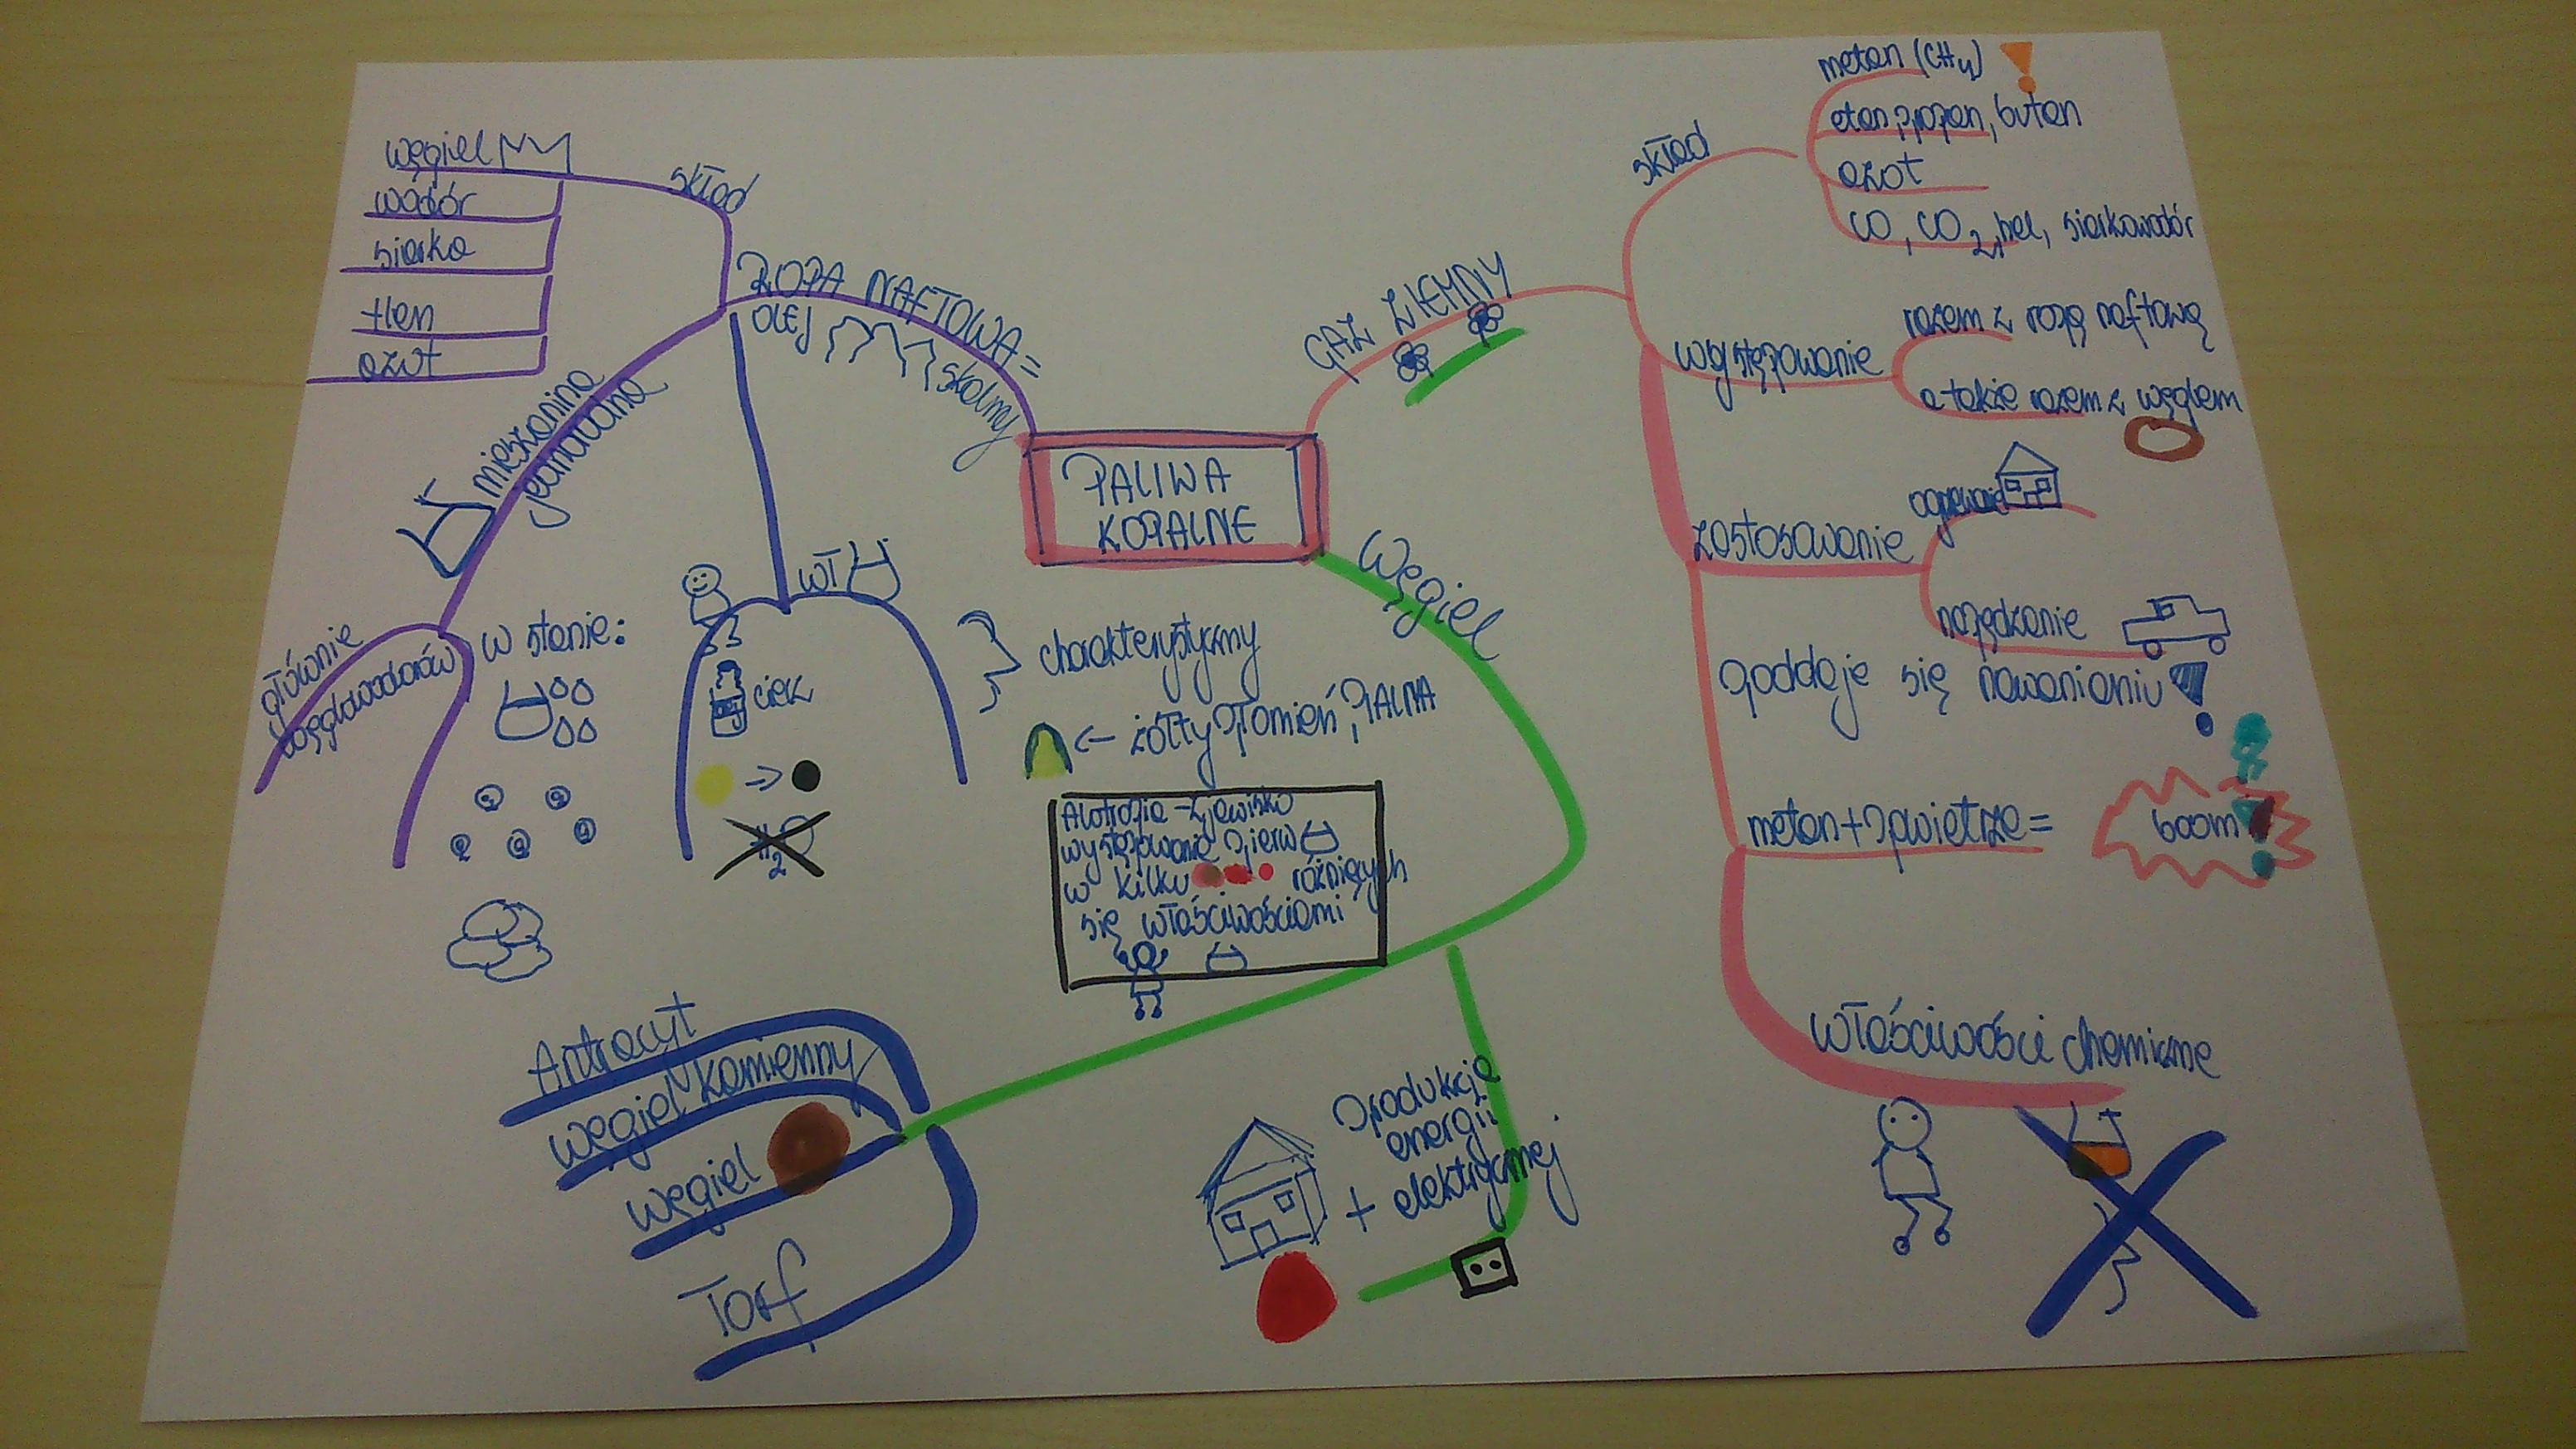 PALIWA
KOPALNE
ROPA NAFTOWA =
OLEJ
skalny
skład
węgiel
wodór
siarka
tlen
azot
mieszanina
jednorodna
głównie
węglowodorów
w stanie:
WŁ
ciek
H2O
charakterystyczny
← żółty płomień, PALNA
Alotropia - zjawisko
występowanie pierw
w kilku różniących
się właściwościami
GAZ ZIEMNY
skład
metan (CH4)
etan, propan, butan
azot
CO, CO2, hel, siarkowodór
występowanie
razem z ropą naftową
a także razem z węglem
zastosowanie
ogrzewanie
napędzanie
poddaje się nawanianiu!
metan + powietrze =
boom!
właściwości chemiczne
Węgiel
Antracyt
węgiel kamienny
węgiel
Torf
produkcja
energii
+ elektrycznej